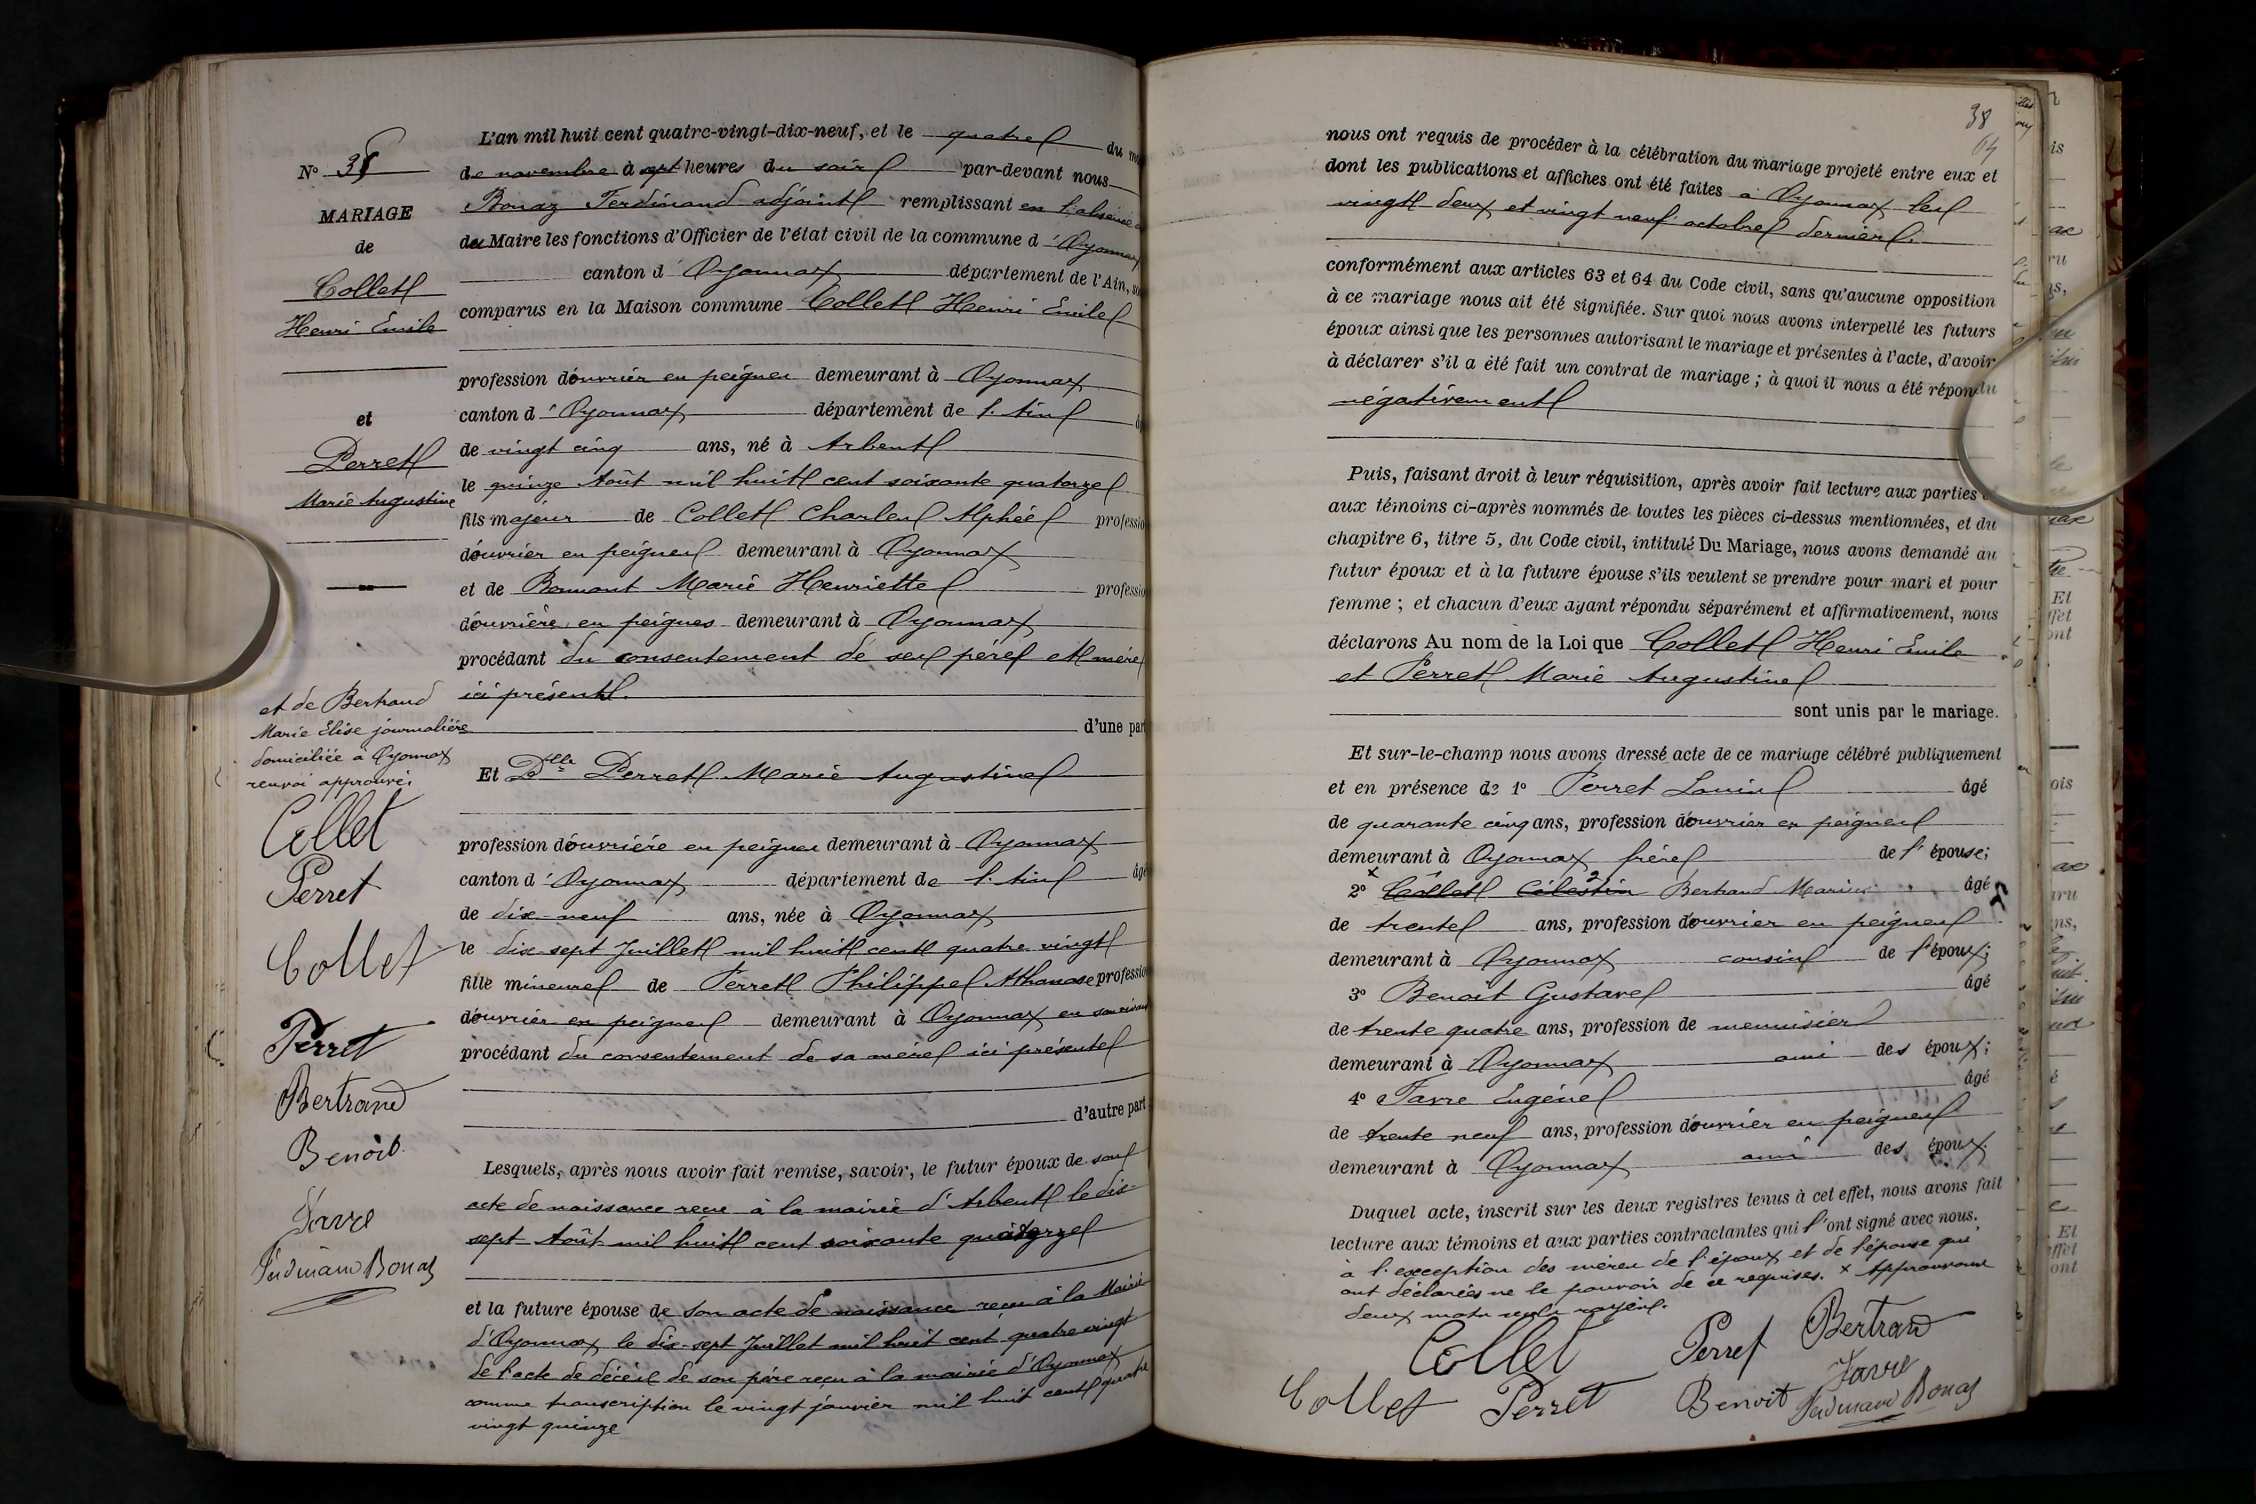 N° 38
MARIAGE
de
Collet
Henri Emile
et
Perret
Marie Augustine
L'an mil huit cent quatre-vingt-dix-neuf, et le quatre du
de novembre à sept heures du soir par-devant nous
Bonaz Ferdinand adjoint remplissant en l'absence
du Maire les fonctions d'Officier de l'état civil de la commune d'Oyonnax
canton d'Oyonnax département de l'Ain,
comparus en la Maison commune Collet Henri Emile
profession d'ouvrier en peignes demeurant à Oyonnax
canton d'Oyonnax département de l'Ain
de vingt cinq ans, né à Arbent
le quinze Août mil huit cent soixante quatorze
fils majeur de Collet Charles Alphée professio
d'ouvrier en peignes demeurant à Oyonnax
et de Bonnant Marie Henriette professio
d'ouvrière en peignes demeurant à Oyonnax
procédant du consentement de ses père et mère
ici présents.
d'une part
Et Dlle Perret Marie Augustine
profession d'ouvrière en peignes demeurant à Oyonnax
canton d'Oyonnax département de l'Ain âgé
de dix-neuf ans, née à Oyonnax
le dix-sept Juillet mil huit cent quatre vingt
fille mineure de Perret Philippe Athanase professio
d'ouvrier en peignes demeurant à Oyonnax en son vivant
procédant du consentement de sa mère ici présente
d'autre part
Lesquels, après nous avoir fait remise, savoir, le futur époux de son
acte de naissance reçu à la mairie d'Arbent le dix
sept Août mil huit cent soixante quatorze
et la future épouse de son acte de naissance reçu à la Mairie
d'Oyonnax le dix-sept Juillet mil huit cent quatre vingt
de l'acte de décès de son père reçu à la mairie d'Oyonnax
comme transcription le vingt janvier mil huit cent quatre
vingt quinze
et de Bertrand
Marie Elise journalière
domiciliée à Oyonnax
renvoi approuvé
Collet
Perret
Collet
Perret
Bertrand
Benoit
Favre
Ferdinand Bonaz
38
nous ont requis de procéder à la célébration du mariage projeté entre eux et
dont les publications et affiches ont été faites à Oyonnax les
vingt deux et vingt neuf octobre dernier.
conformément aux articles 63 et 64 du Code civil, sans qu'aucune opposition
à ce mariage nous ait été signifiée. Sur quoi nous avons interpellé les futurs
époux ainsi que les personnes autorisant le mariage et présentes à l'acte, d'avoir
à déclarer s'il a été fait un contrat de mariage ; à quoi il nous a été répondu
négativement
Puis, faisant droit à leur réquisition, après avoir fait lecture aux parties
aux témoins ci-après nommés de toutes les pièces ci-dessus mentionnées, et du
chapitre 6, titre 5, du Code civil, intitulé Du Mariage, nous avons demandé au
futur époux et à la future épouse s'ils veulent se prendre pour mari et pour
femme ; et chacun d'eux ayant répondu séparément et affirmativement, nous
déclarons Au nom de la Loi que Collet Henri Emile
et Perret Marie Augustine
sont unis par le mariage.
Et sur-le-champ nous avons dressé acte de ce mariage célébré publiquement
et en présence de 1° Perret Louis âgé
de quarante cinq ans, profession d'ouvrier en peignes
demeurant à Oyonnax frère de l'épouse;
2° Collet Célestin Bertrand Marius âgé
de trente ans, profession d'ouvrier en peignes
demeurant à Oyonnax cousin de l'époux;
3° Benoit Gustave âgé
de trente quatre ans, profession de menuisier
demeurant à Oyonnax ami des époux;
4° Favre Eugène âgé
de trente neuf ans, profession d'ouvrier en peignes
demeurant à Oyonnax ami des époux
Duquel acte, inscrit sur les deux registres tenus à cet effet, nous avons fait
lecture aux témoins et aux parties contractantes qui l'ont signé avec nous.
à l'exception des mères de l'époux et de l'épouse qui
ont déclarées ne le pouvoir de ce requises. x Approuvons
deux mots nuls rayés.
Collet Perret Bertrand
Favre
Collet Perret Benoit Ferdinand Bonaz